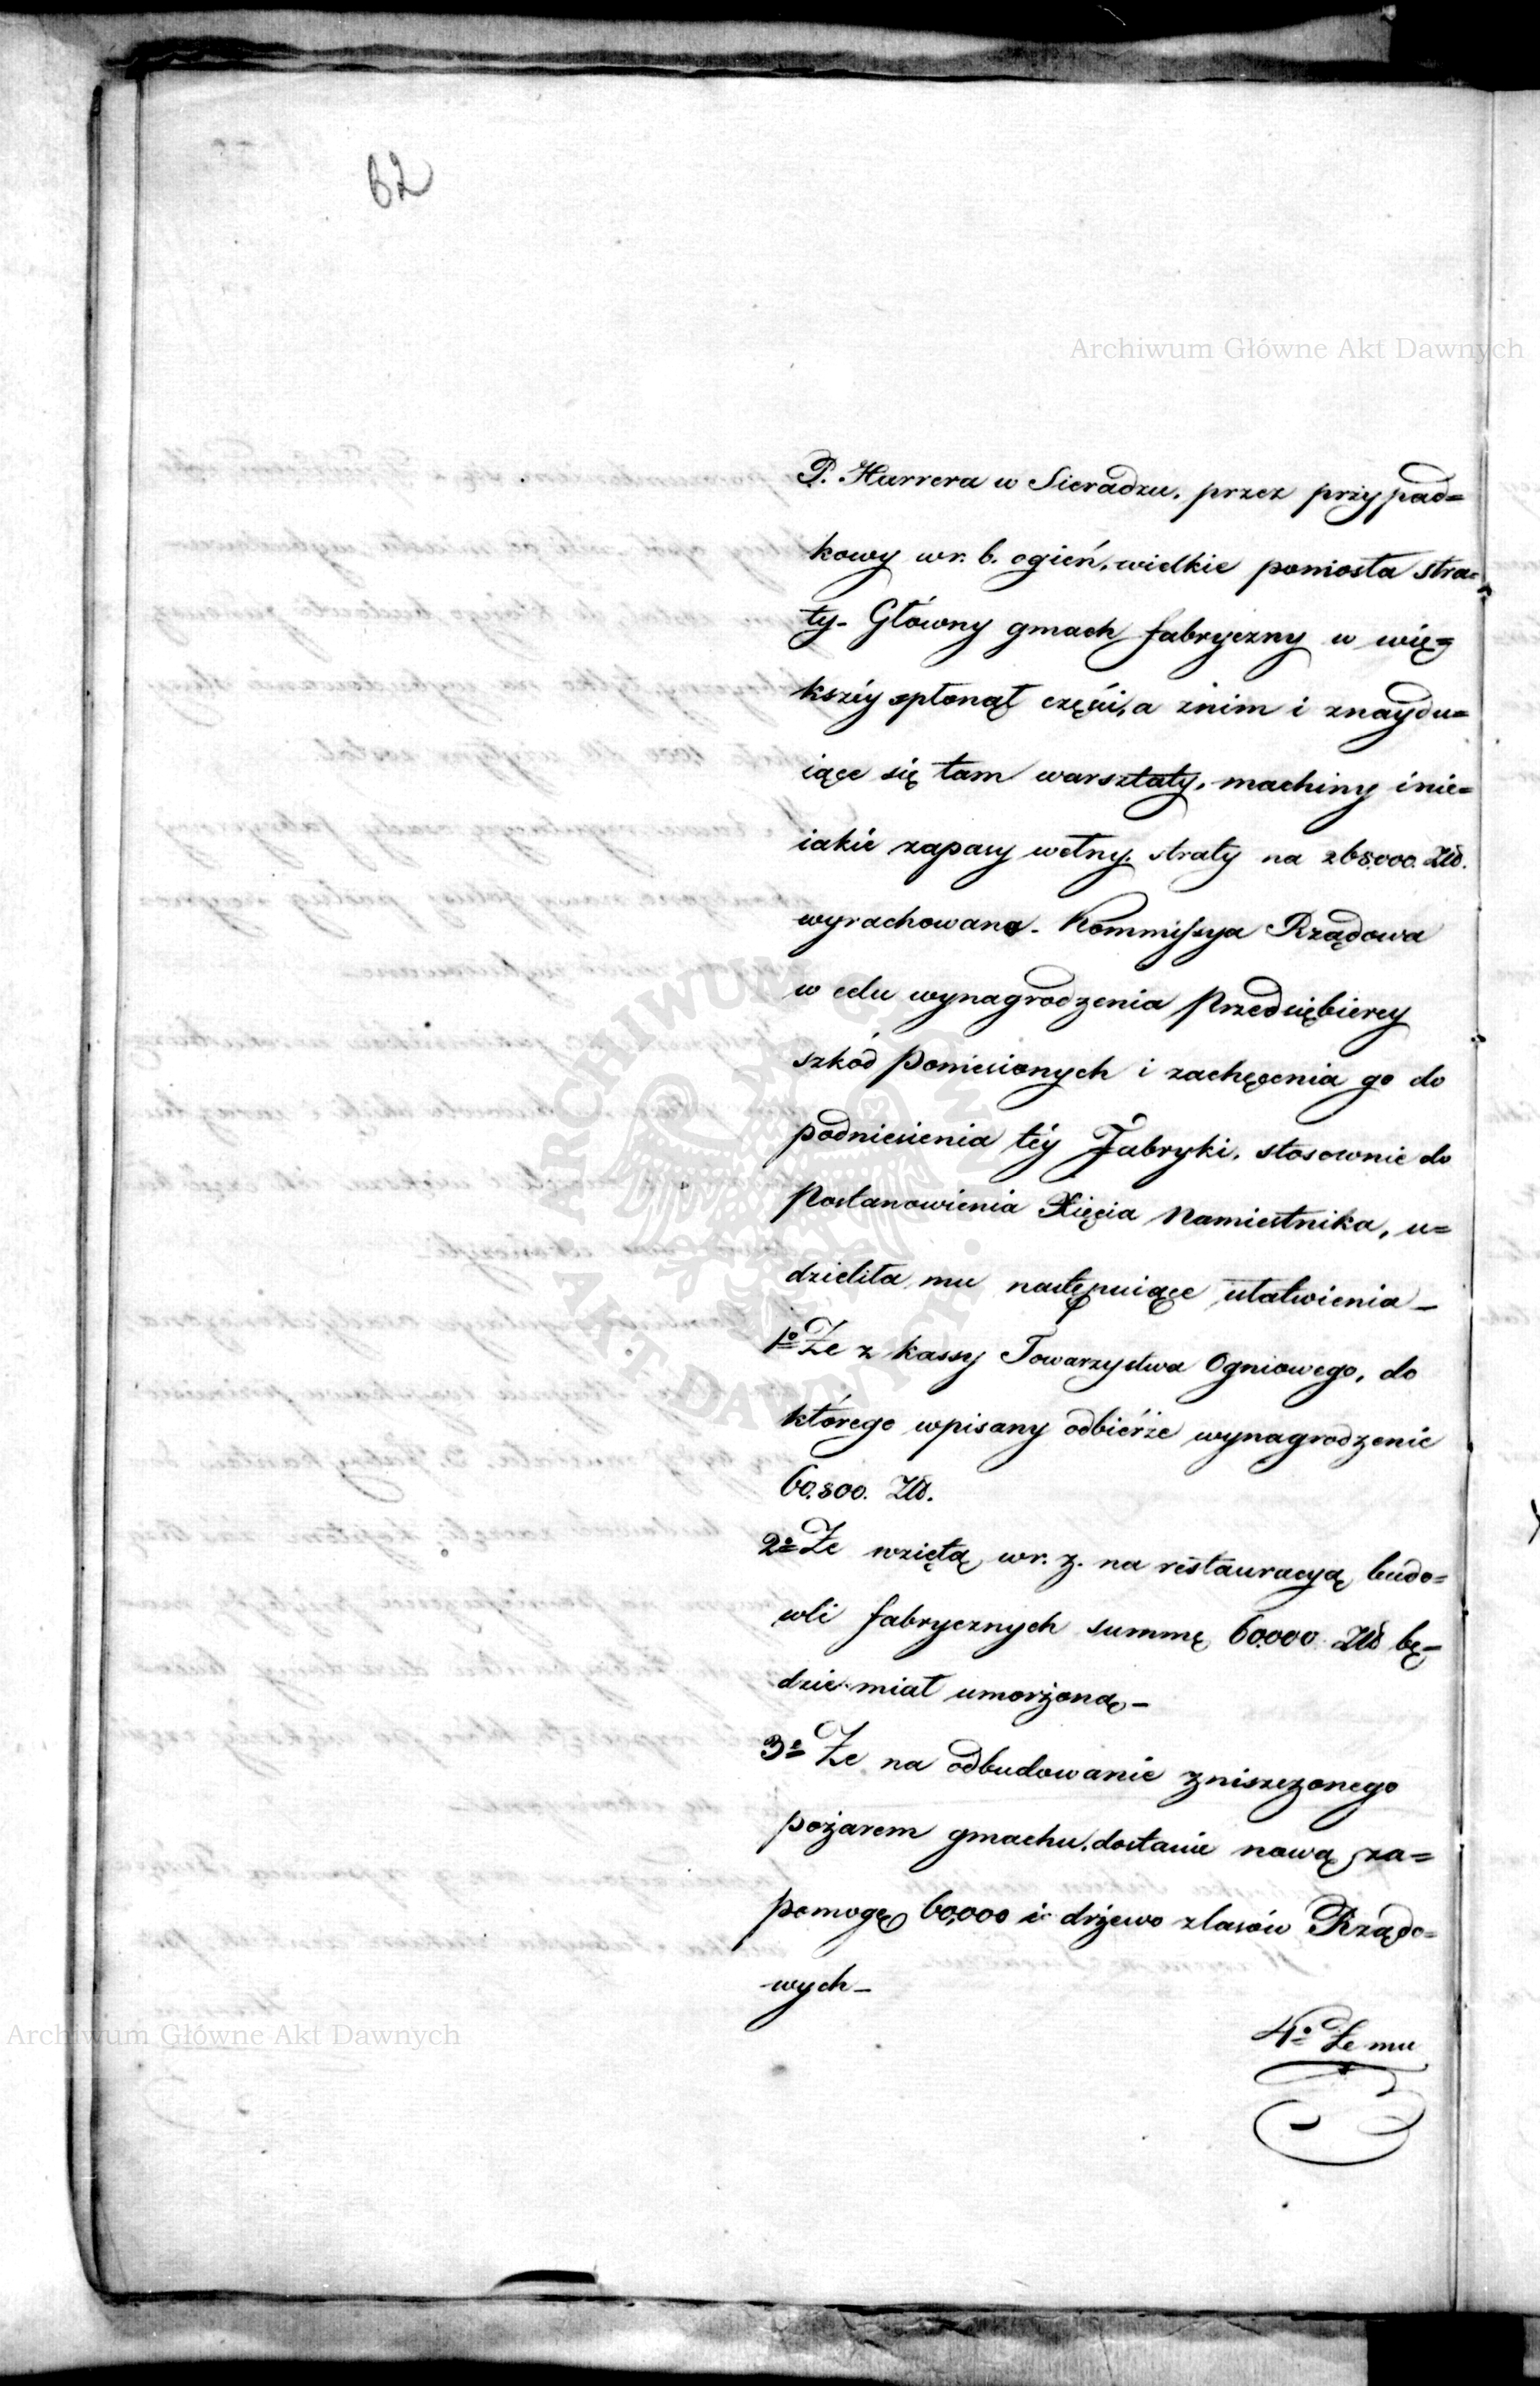 62
Archiwum Główne Akt Dawnych
P. Harrera w Sieradzu, przez przypad=
kowy w r. b. ogień, wielkie poniosła stra=
ty- Główny gmach fabryczny w wię=
kszéy spłonął częśći, a znim i znaydu=
iące się tam warsztaty, machiny i nie=
iakie zapasy wełny. straty na 268.000. Złł.
wyrachowano- Kommissya Rządowa
w celu wynagrodzenia Przedsiębiercy
szkód poniesionych i zachęcenia go do
podniesienia téy Fabryki, stosownie do
Postanowienia Xięcia Namiestnika, u=
dzieliła mu następuiące ułatwienia-
1º Że z kassy Towarzystwa Ogniowego, do
którego wpisany odbierże wynagrodzenie
60.800. Złł.
2º Że wziętą w r. z. na restauracyą budo=
wli fabrycznych summę 60.000 Złł bę-
dzie miał umorżoną-
3º Że na odbudowanie zniszczonego
pożarem gmachu, dostanie nową za=
pomogę 60,000 i drżewo z lasów Rządo=
wych-
4º Że mu
ARCHIWUM GŁÓWNE AKT DAWNYCH
Archiwum Główne Akt Dawnych